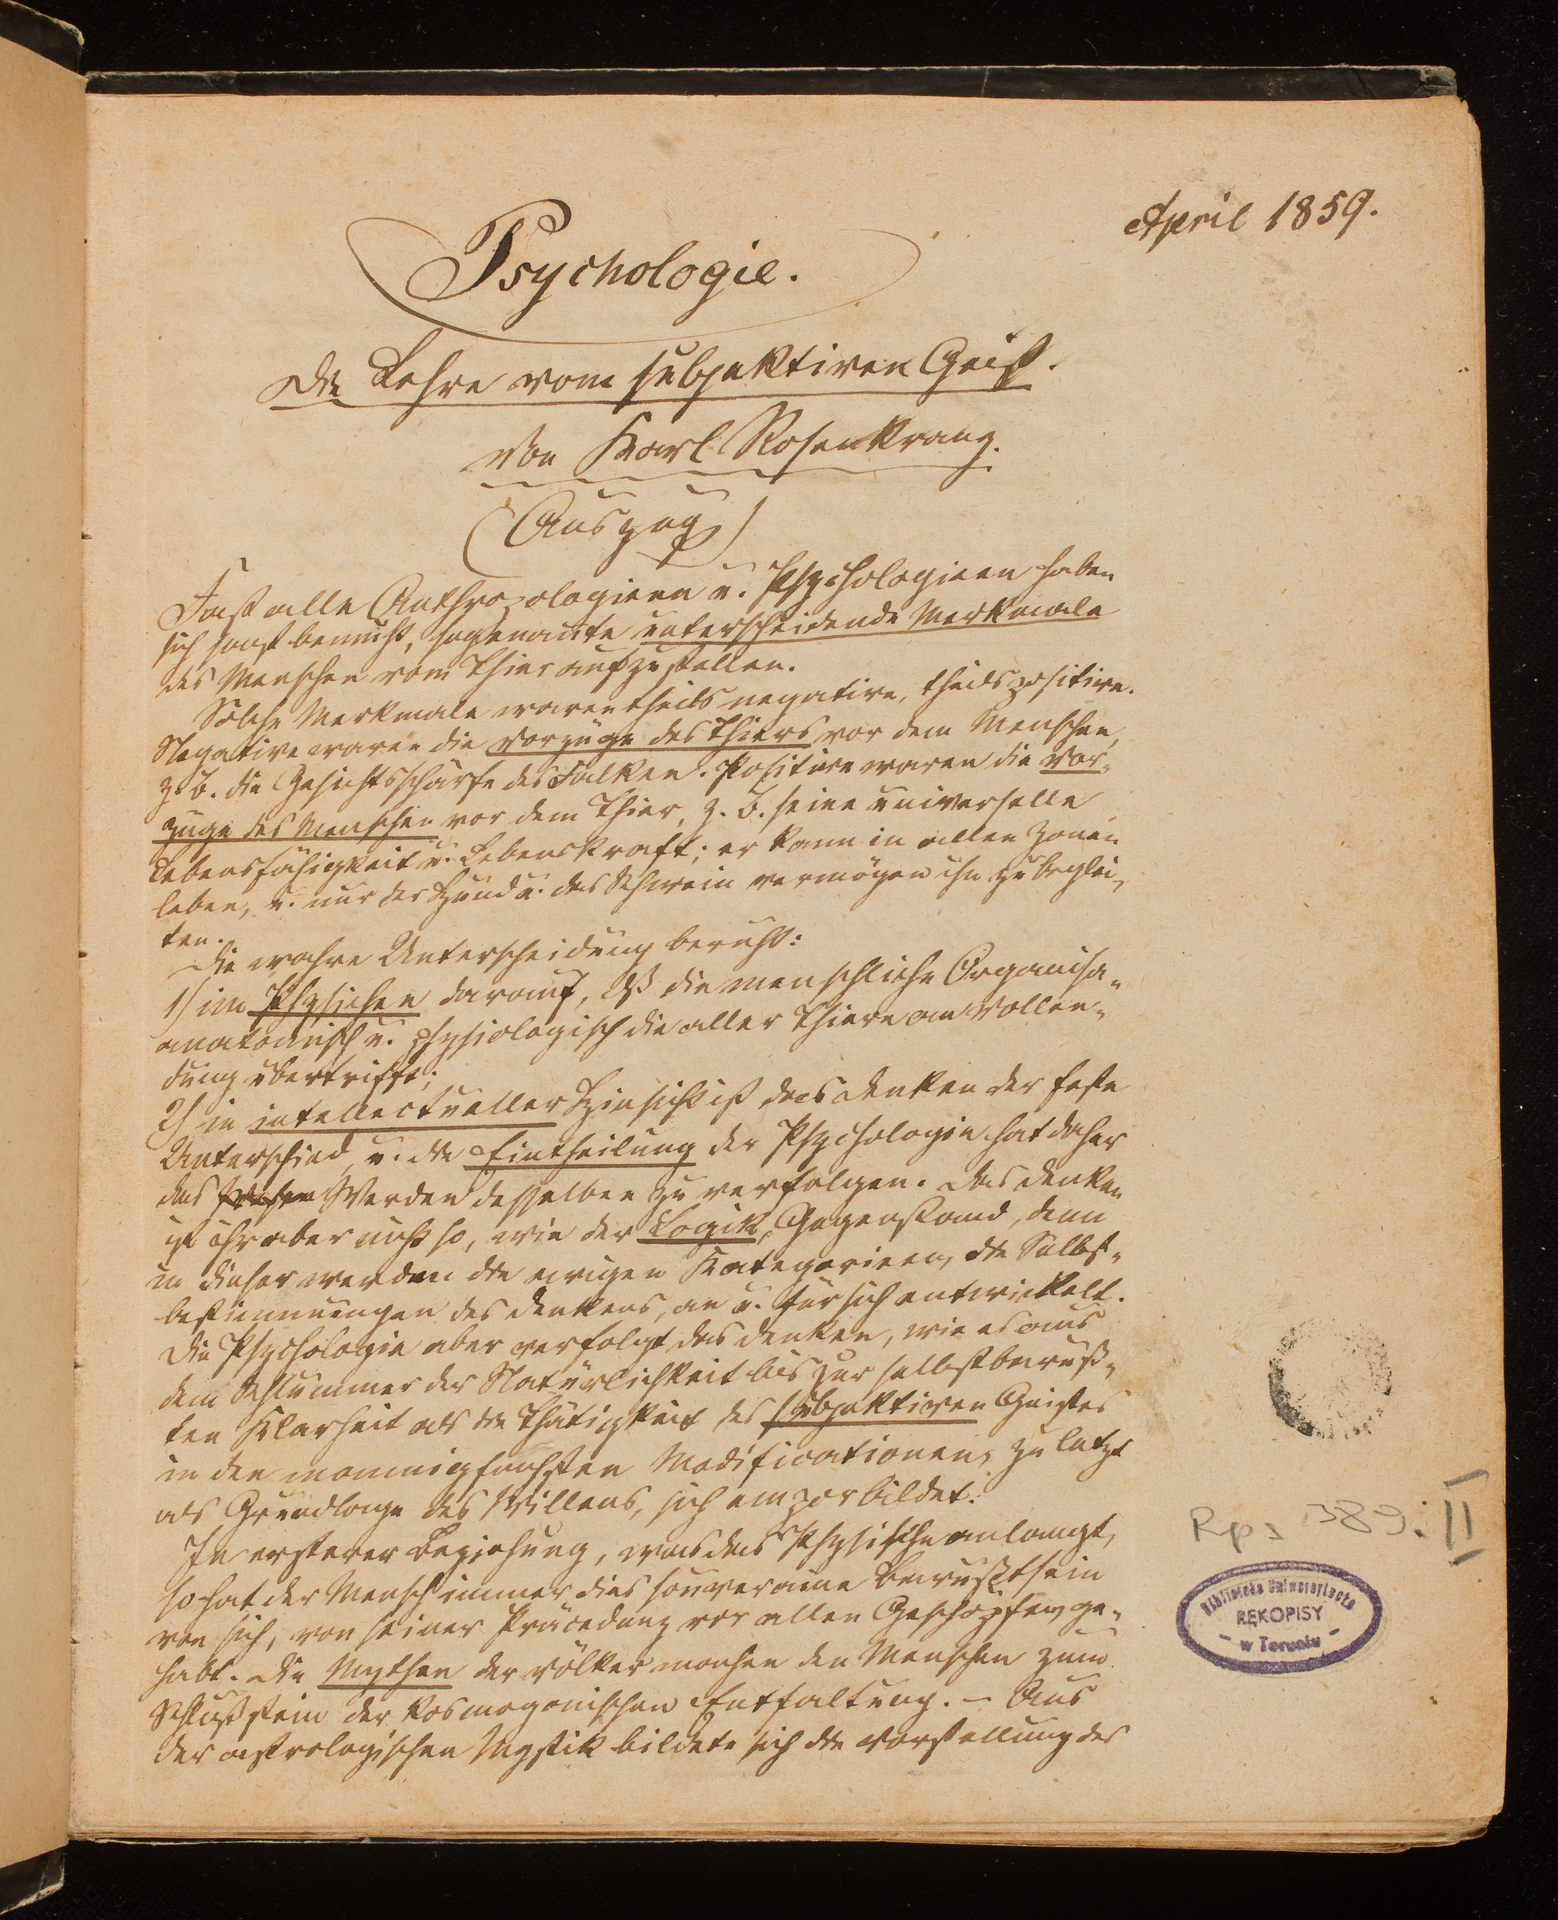 April 1859.
Psychologie.
Die Lehre vom subjektiven Geist.
Von Karl Rosenkranz.
(Auszug)
Fast alle Anthropologieen u. Psychologieen haben
sich sonst bemüht, sogenannte unterscheidende Merkmale
des Menschen vom Thier aufzustellen.
Solche Merkmale waren theils negative, theils positive.
Negative waren die Vorzüge des Thiers vor dem Menschen,
z. B. die Gesichtsschärfe des Falken. Positive waren die Vor-
züge des Menschen vor dem Thier, z. B. seine universelle
Lebensfähigkeit u. Lebenskraft; er kann in allen Zonen
leben, u. nur der Hund u. das Schwein vermögen ihn zu beglei-
ten.
Die wahre Unterscheidung beruht:
1) im Physischen darauf, daß die menschliche Organisa-
anatomisch u. physiologisch die aller Thiere an Vollen-
dung übertrifft;
2) in intellectueller Hinsicht ist das Denken der feste
Unterschied, u. die Eintheilung der Psychologie hat daher
das Werden desselben zu verfolgen. Das Denken
ist ihr aber nicht so, wie der Logik, Gegenstand, denn
in dieser werden die ewigen Kategorieen, die Selbst-
bestimmungen des Denkens, an u. für sich entwickelt.
Die Psychologie aber verfolgt das Denken, wie es aus
dem Schlummer der Natürlichkeit bis zur selbstbewuß-
ten Klarheit als die Thätigkeit des subjektiven Geistes
in den mannigfachsten Modificationen, zuletzt
als Grundlage des Willens, sich emporbildet.
In ersterer Beziehung, was das Physische anlangt,
so hat der Mensch immer dies souveraine Bewußtsein
von sich, von seiner Präcedenz vor allen Geschöpfen, ge-
habt. Die Mythen der Völker machen den Menschen zum
Schlußstein der kosmogonischen Entfaltung. – Aus
der astrologischen Mystik bildete sich die Vorstellung des
Rps 389. II
Biblioteka Uniwersytecka
RĘKOPISY
– w Toruniu –